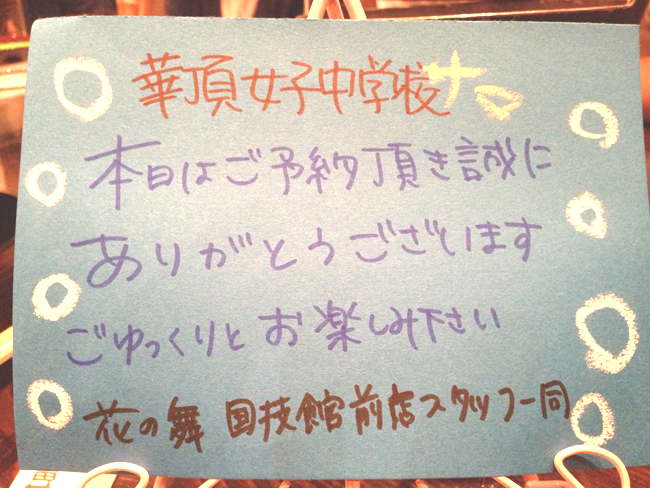 華頂女子中学校サマ
本日はご予約頂き誠に
ありがとうございます
ごゆっくりとお楽しみ下さい
花の舞 国技館前店スタッフ一同